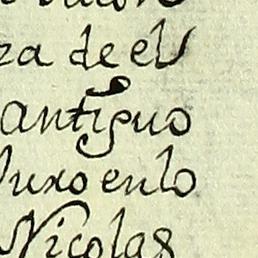 za de el
antiguo
Juxo en lo
Nicolas